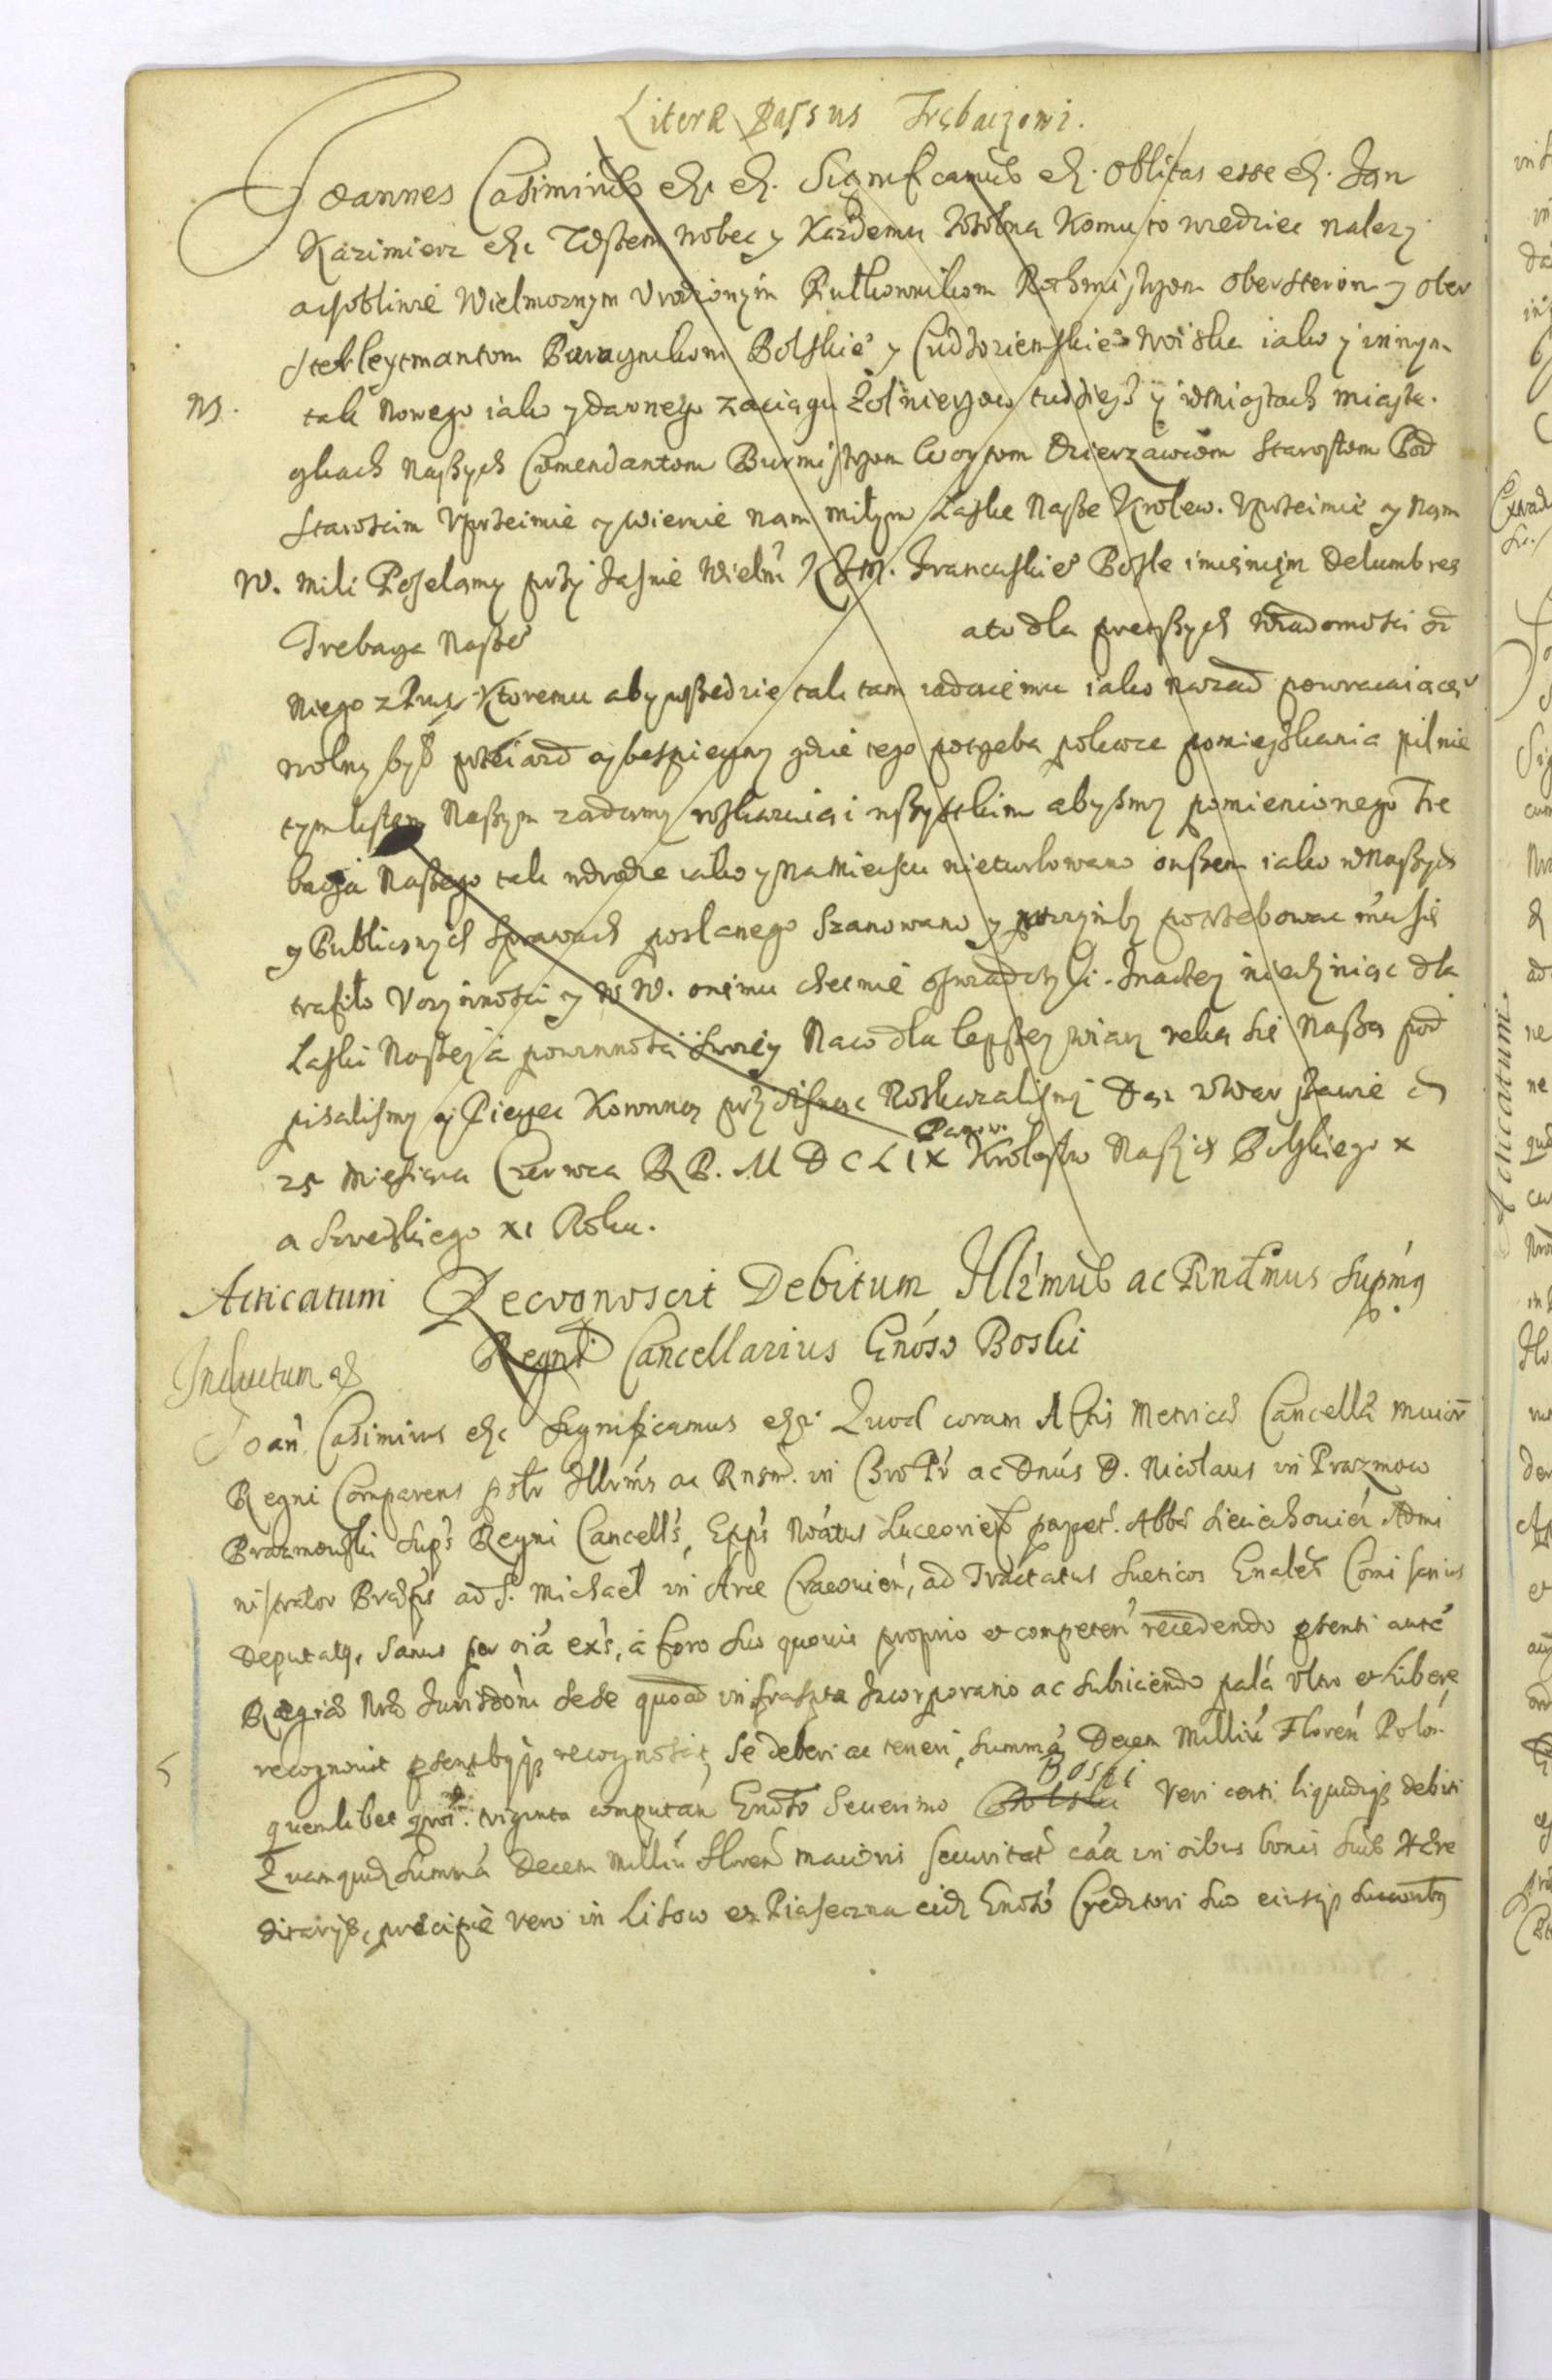 Literæ Passus Trębaczowi.
Joannes Casimirus etc etc. Significamus etc. Oblitas esse etc. Jan
Kazimierz etc Wszem wobec y Kazdemu zosobna Komu to wiedziec nalezy
a osobliwie Wielmoznym Vrodzonym Pułkownikom Rothmistrzom Obersterom y Ober
sterleytmantom Polskie y Cudzoziemskie woiska iako y innym
ns. tak Nowego iako y dawnego zaciągu Zołnierzow tudziesz y w Miastach miaste.
czkach Naszych Comendantom Burmistrzom Woytom Dzierzawcom Starostom Pod
Staroscim Vprzeimie y wiernie nam miłym Łaske Nasze Krolew. Vprzeimie y Nam
W. mili Poselamy przy Jasnie Wielm Francuskie Posle imieniem Delumbres
Trebacza Nasze a to dla pretszych Wiadomosci od
Niego Ktoremu aby wszedzie tak tam iadacemu iako nazad powracaiące
wolny był przeiazd y bespieczny gdzie tego potrzeba pokaze pomieszkania pilnie
tym listem Naszym zadamy roskazuiąc wszystkim abysmy pomienionego Tre
bacza Naszego tak w drodze iako y na Mieiscu nieturbowano owszem iako w Naszych
y Publicznych Sprawach posłanego Szanowano y potrzebowac mu się
trafiło Vczynnosci y W W. onemu chetnie oswiadczyli. Inaczey nieczyniąc dla
Łaski Naszey a powinnosci Swoiey Na co dla lepszey wiary reką się Naszą pod
pisalismy y Pieczęc Koronną przycisnąc Roskazalismy Dan w Warszawie d
25 Miesiąca Czerwca R P. M D C L I X Panow. Krolestw Naszych Polskiego x
a Szwedzkiego xi Roku.
Acticatum Recognoscit Debitum Illrmus ac Rndmus Supmg
Regni Cancellarius Gnoso Boski
Inductum est
Joan Casimirus etc Significamus etc. Quod coram Actis Metrices Cancell maior
Regni Comparens psolr Illrms ac Rnsm. in Chro Pr ac Dnus D. Nicolaus in Prazmow
Prazmowski Sups Regni Cancells, Epps Noatus Luceorien Abbs Sieciehovien Admi
nistrator ad S. Michael in Arce Cracovien, ad Tractatus Sueticos Gnales Comissarius
Deputatq, Sanus per oia exs, a foro suo quovis proprio et competen recedendo pstenti aute
Regies Nres Jurisdoni sese quoad infraspta Incorporando ac subiiciendo pala Vltro et libere
recognovit pstentbqqz recognoscit, se deberi ac teneri, summa Decem Milliu Floren Polon
quemlibet triginta computan Gnoso Severino Boski Veri certi liquidiqz debiti
Quamquidem Summa Decem Milliu Floren maioris securitat caa in oibus bonis suis Hære
ditarijs, præcipue vero in Lisow et Piaseczna eidem Gnoso Creditori suo eiusqz